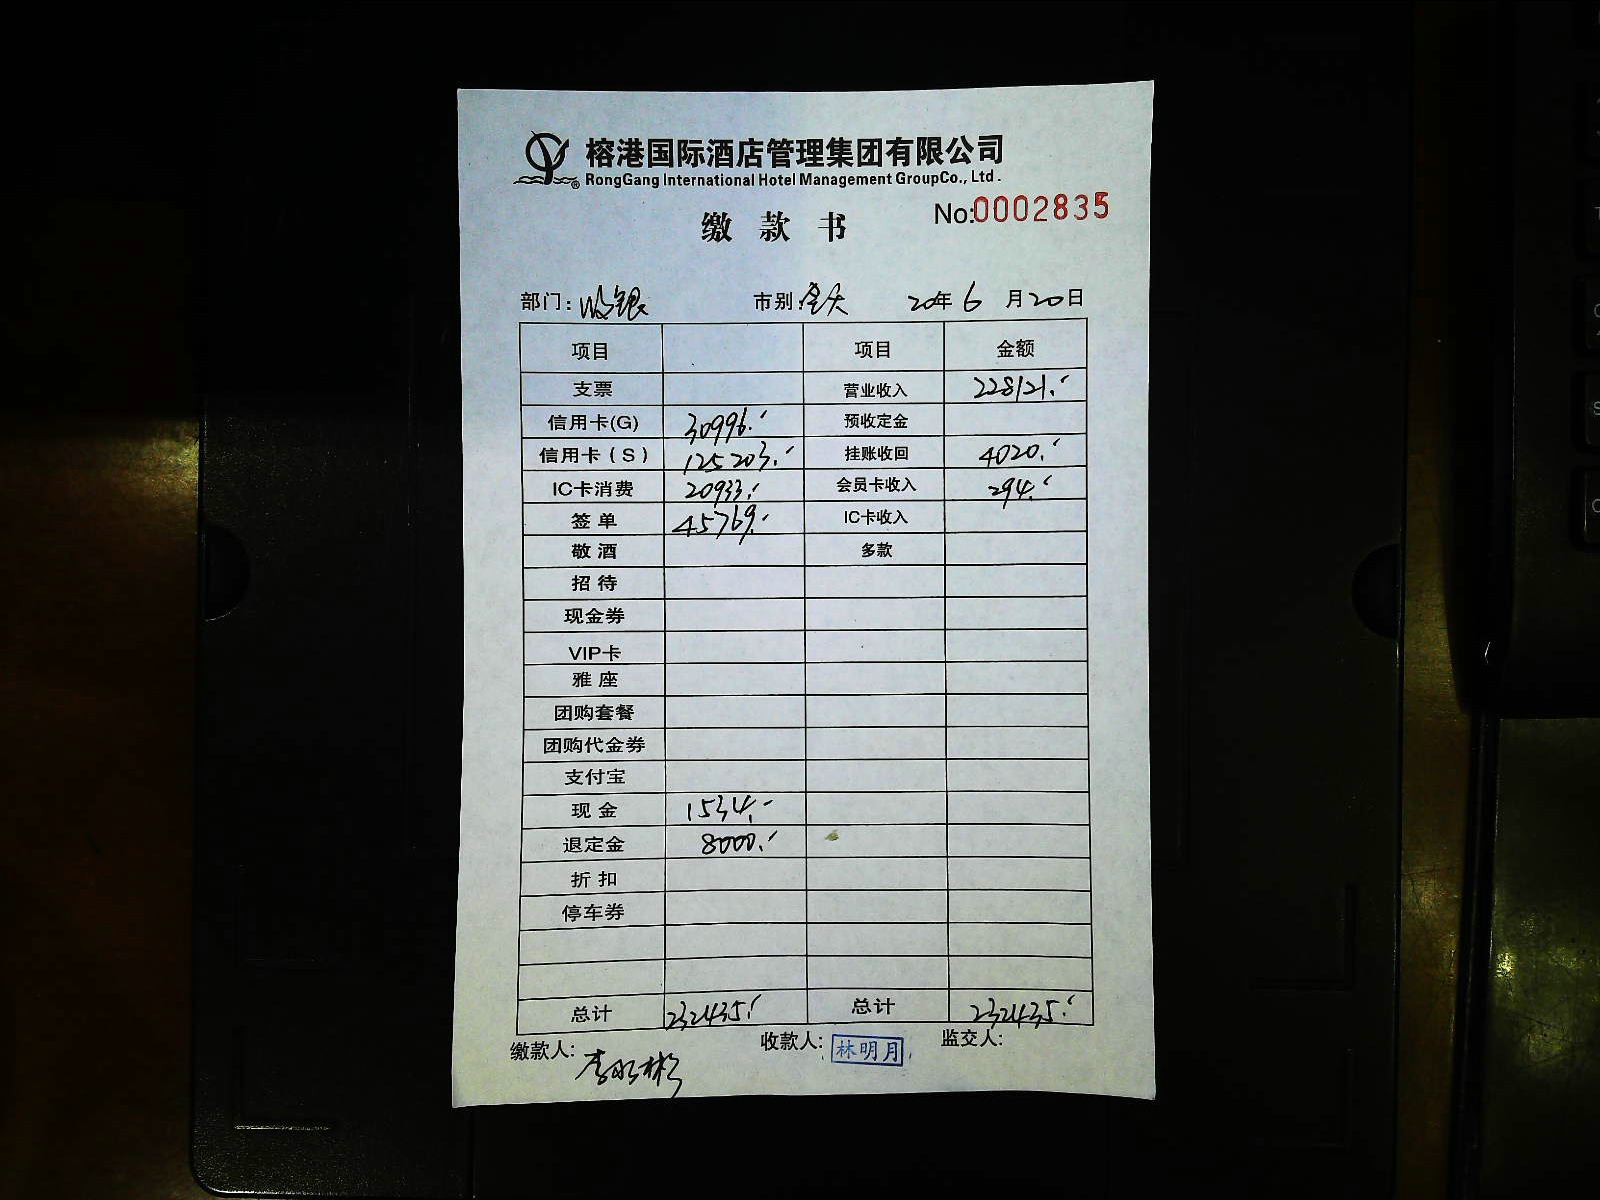 榕港国际酒店管理集团有限公司
RongGang International Hotel Management GroupCo., Ltd.
No:0002835
缴 款 书
部门: 收银 市别: 全天 20年 6 月 20 日
项目 项目 金额
支票 营业收入 228121.-
信用卡(G) 30996.- 预收定金
信用卡(S) 125203.- 挂账收回 4020.-
IC卡消费 20933.- 会员卡收入 294.-
签 单 45769.- IC卡收入
敬 酒 多款
招 待
现金券
VIP卡
雅 座
团购套餐
团购代金券
支付宝
现 金 1534.-
退定金 8000.-
折 扣
停车券
总计 232435.- 总计 232435.-
缴款人: 收款人: 林明月 监交人: